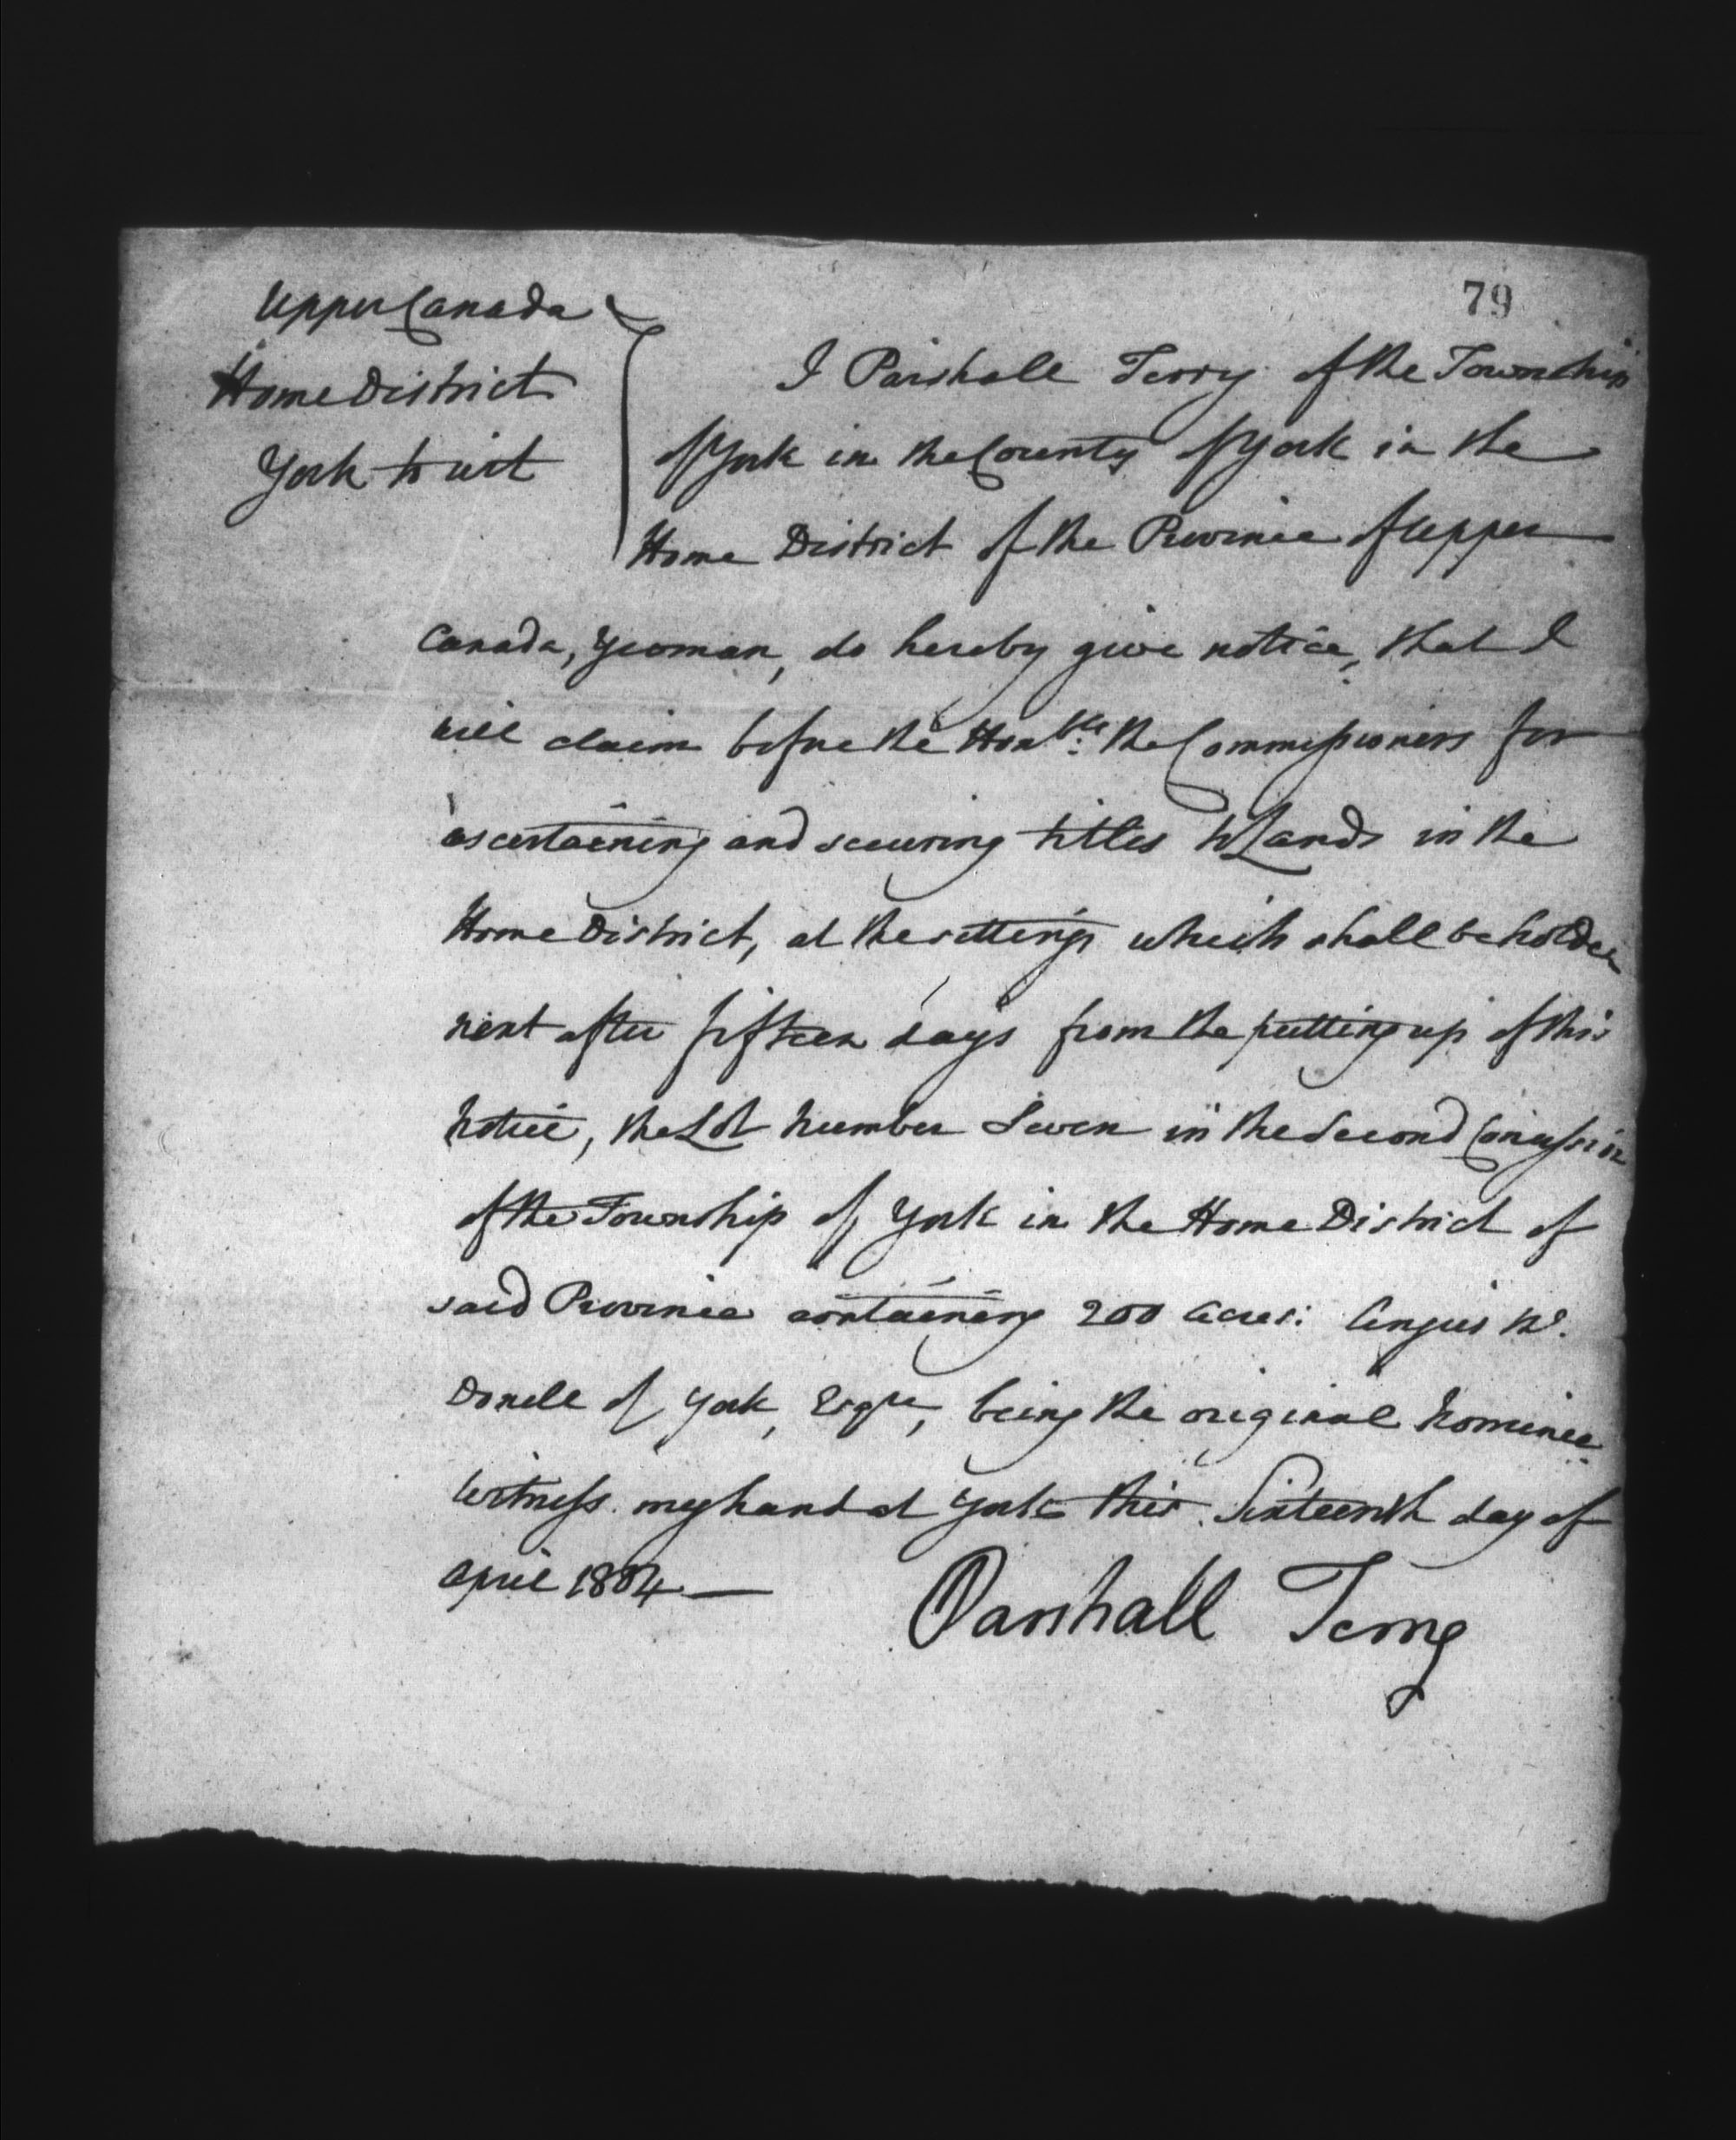 79
Upper Canada
Home District
York to wit
I Parshall Terry of the Township
of York in the County of York in the
Home District of the Province of Upper
Canada, Yeoman, do hereby give notice, that I
will claim before the Honble: the Commissioners for
ascertaining and securing titles to Lands in the
Home District, at the sittings which shall be holden
next after fifteen days from the putting up of this
notice, the Lot number Seven in the Second Concession
of the Township of York in the Home District of
said Province containing 200 acres: Angus Mc.
Donell of York, Esqre, being the original nominee
Witness my hand at York this Sixteenth day of
April 1804 —
Parshall Terry